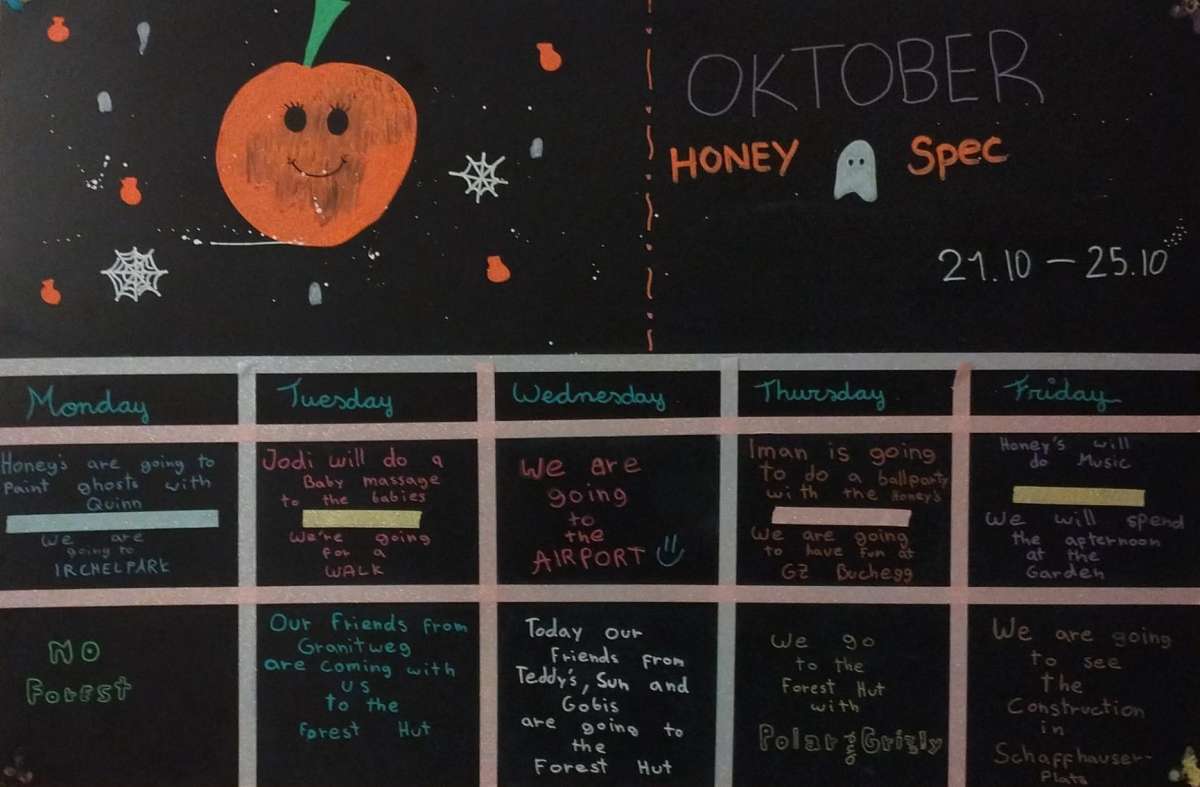 OKTOBER
HONEY Spec
21.10 – 25.10
Monday
Tuesday
Wednesday
Thursday
Friday
Honey's are going to
Paint ghosts with
Quinn
We are
going to
IRCHELPARK
Jodi will do a
Baby massage
to the babies
We're going
for a
WALK
We are
going
to
the
AIRPORT
Iman is going
to do a ballparty
with the Honey's
We are going
to have fun at
GZ Buchegg
Honey's will
do Music
We will spend
the afternoon
at the
Garden
NO
Forest
Our friends from
Granitweg
are coming with
us
to the
forest Hut
Today our
friends from
Teddy's, Sun and
Gobis
are going to
the
Forest Hut
We go
to the
Forest Hut
with
Polar & Grizly
We are going
to see
the
Construction
in
Schaffhauser-
Platz